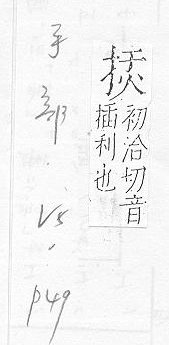 初洽切音
插利也
手部.
p49